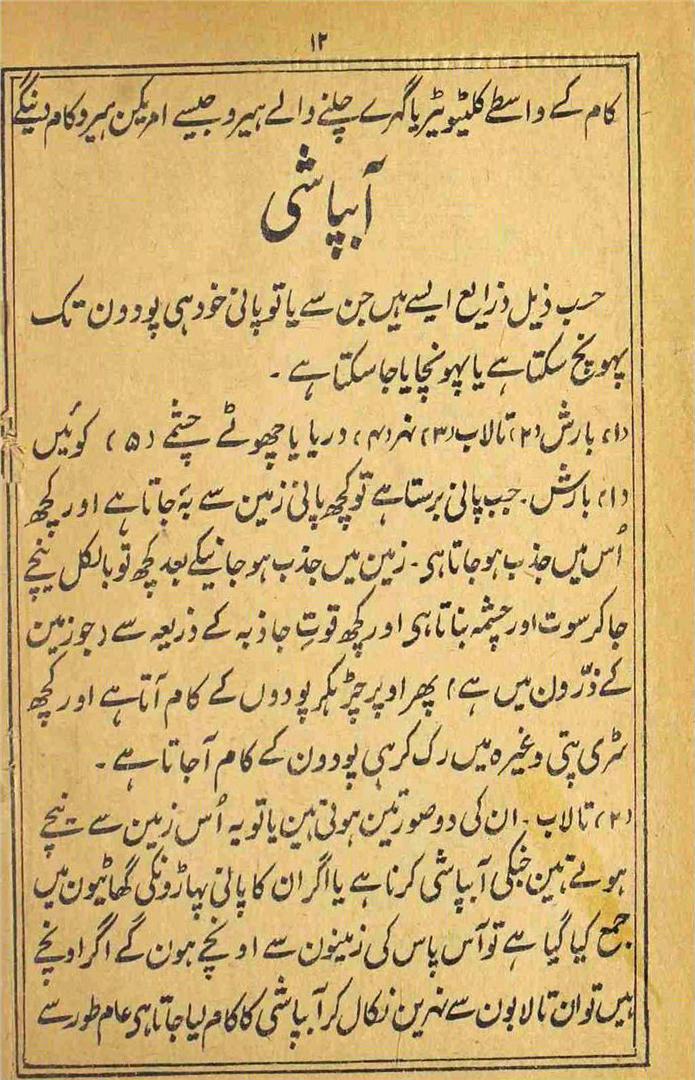 ۱۲
کام کے واسطے کلٹیویٹر یا گہرے چلنے والے ہیرو جیسے امریکن ہیرو کام دینگے
آبپاشی
حسب ذیل ذرایع ایسے ہیں جن سے یا تو پانی خود ہی پودون تک
پہونچ سکتا ہے یا پہونچایا جا سکتا ہے ۔
(۱) بارش (۲) تالاب (۳) نہر (۴) دریا یا چھوٹے چشمے (۵) کوئیں
(۱) بارش ۔ جب پانی برستا ہے تو کچھ پانی زمین سے بہ جاتا ہے اور کچھ
اُس میں جذب ہو جاتا ہی ۔ زمین میں جذب ہو جانیکے بعد کچھ تو بالکل نیچے
جا کر سوت اور چشمہ بناتا ہی اور کچھ قوتِ جاذبہ کے ذریعہ سے (جو زمین
کے ذرّون میں ہے) پھر اوپر چڑہکر پودوں کے کام آتا ہے اور کچھ
سڑی پتی وغیرہ میں رک کر ہی پودون کے کام آجاتا ہے ۔
(۲) تالاب ۔ ان کی دو صورتین ہوتی ہین یا تو یہ اُس زمین سے نیچے
ہوتے ہین جنکی آبپاشی کرنا ہے یا اگر ان کا پانی پہاڑونکی گھاٹیون میں
جمع کیا گیا ہے تو آس پاس کی زمینون سے اونچے ہون گے اگر اونچے
ہیں تو ان تالابون سے نہرین نکال کر آبپاشی کا کام لیا جاتا ہی عام طور سے